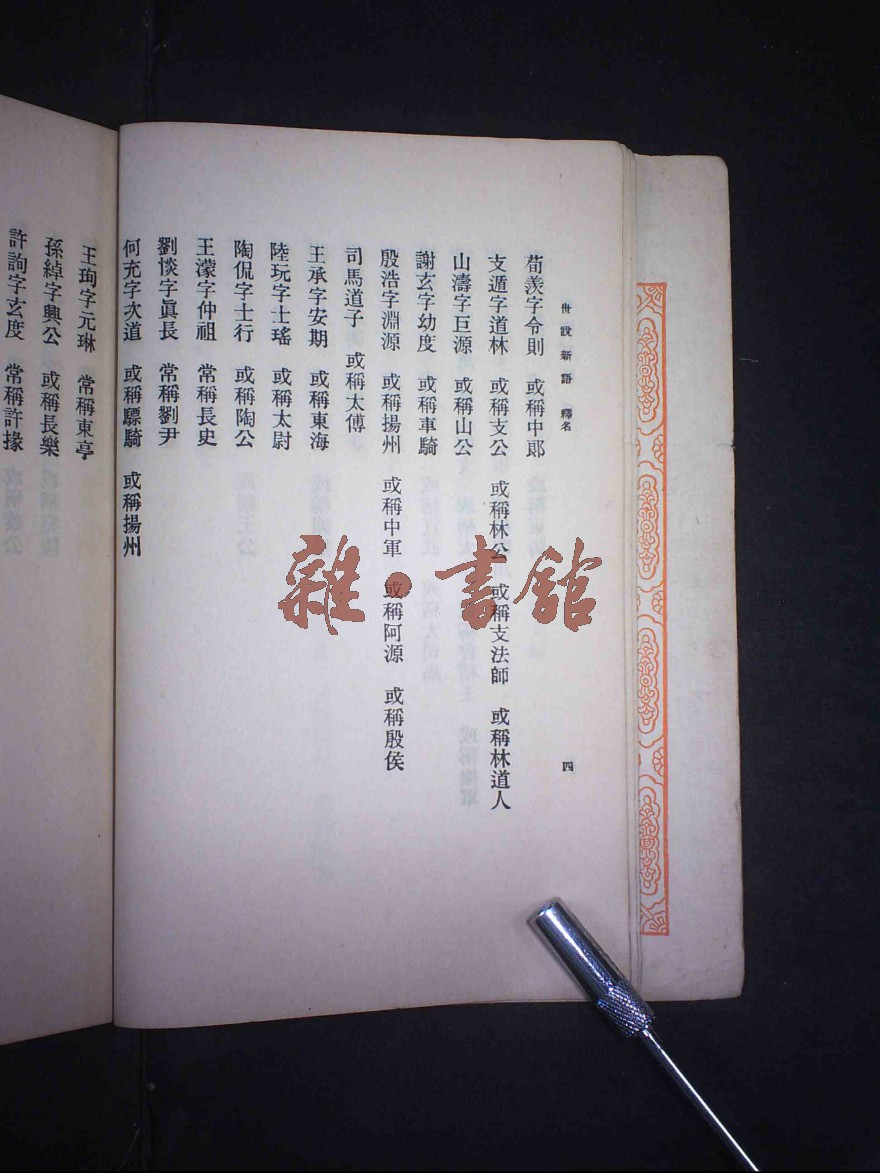 世說新語 釋名
四
荀羨字令則 或稱中郎
支遁字道林 或稱支公 或稱林公 或稱支法師 或稱林道人
山濤字巨源 或稱山公
謝玄字幼度 或稱車騎
殷浩字淵源 或稱揚州 或稱中軍 或稱阿源 或稱殷侯
司馬道子 或稱太傅
王承字安期 或稱東海
陸玩字士瑤 或稱太尉
陶侃字士行 或稱陶公
王濛字仲祖 常稱長史
劉惔字眞長 常稱劉尹
何充字次道 或稱驃騎 或稱揚州
王珣字元琳 常稱東亭
孫綽字興公 或稱長樂
許詢字玄度 常稱許掾
雜·書館